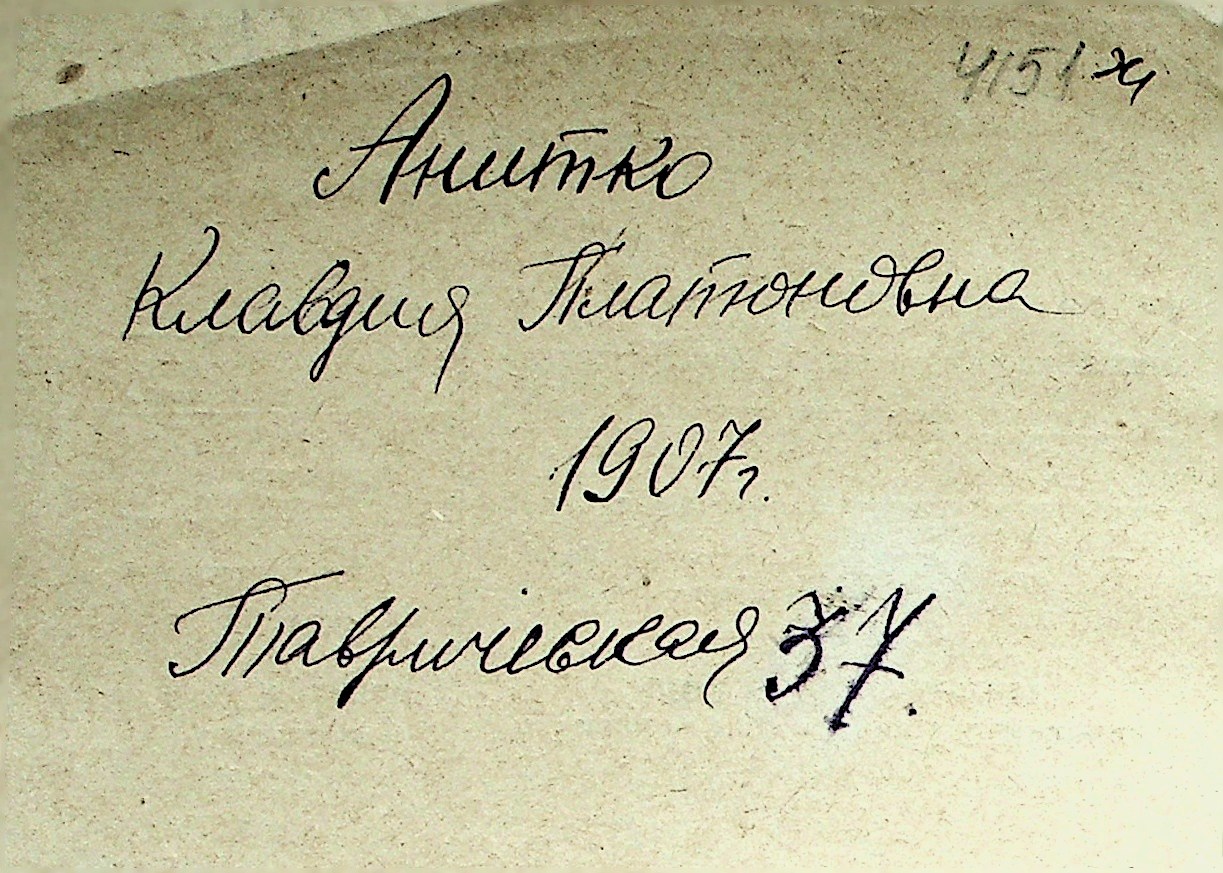 4151
Анитко
Клавдия Платоновна
1907г.
Таврическая 37.